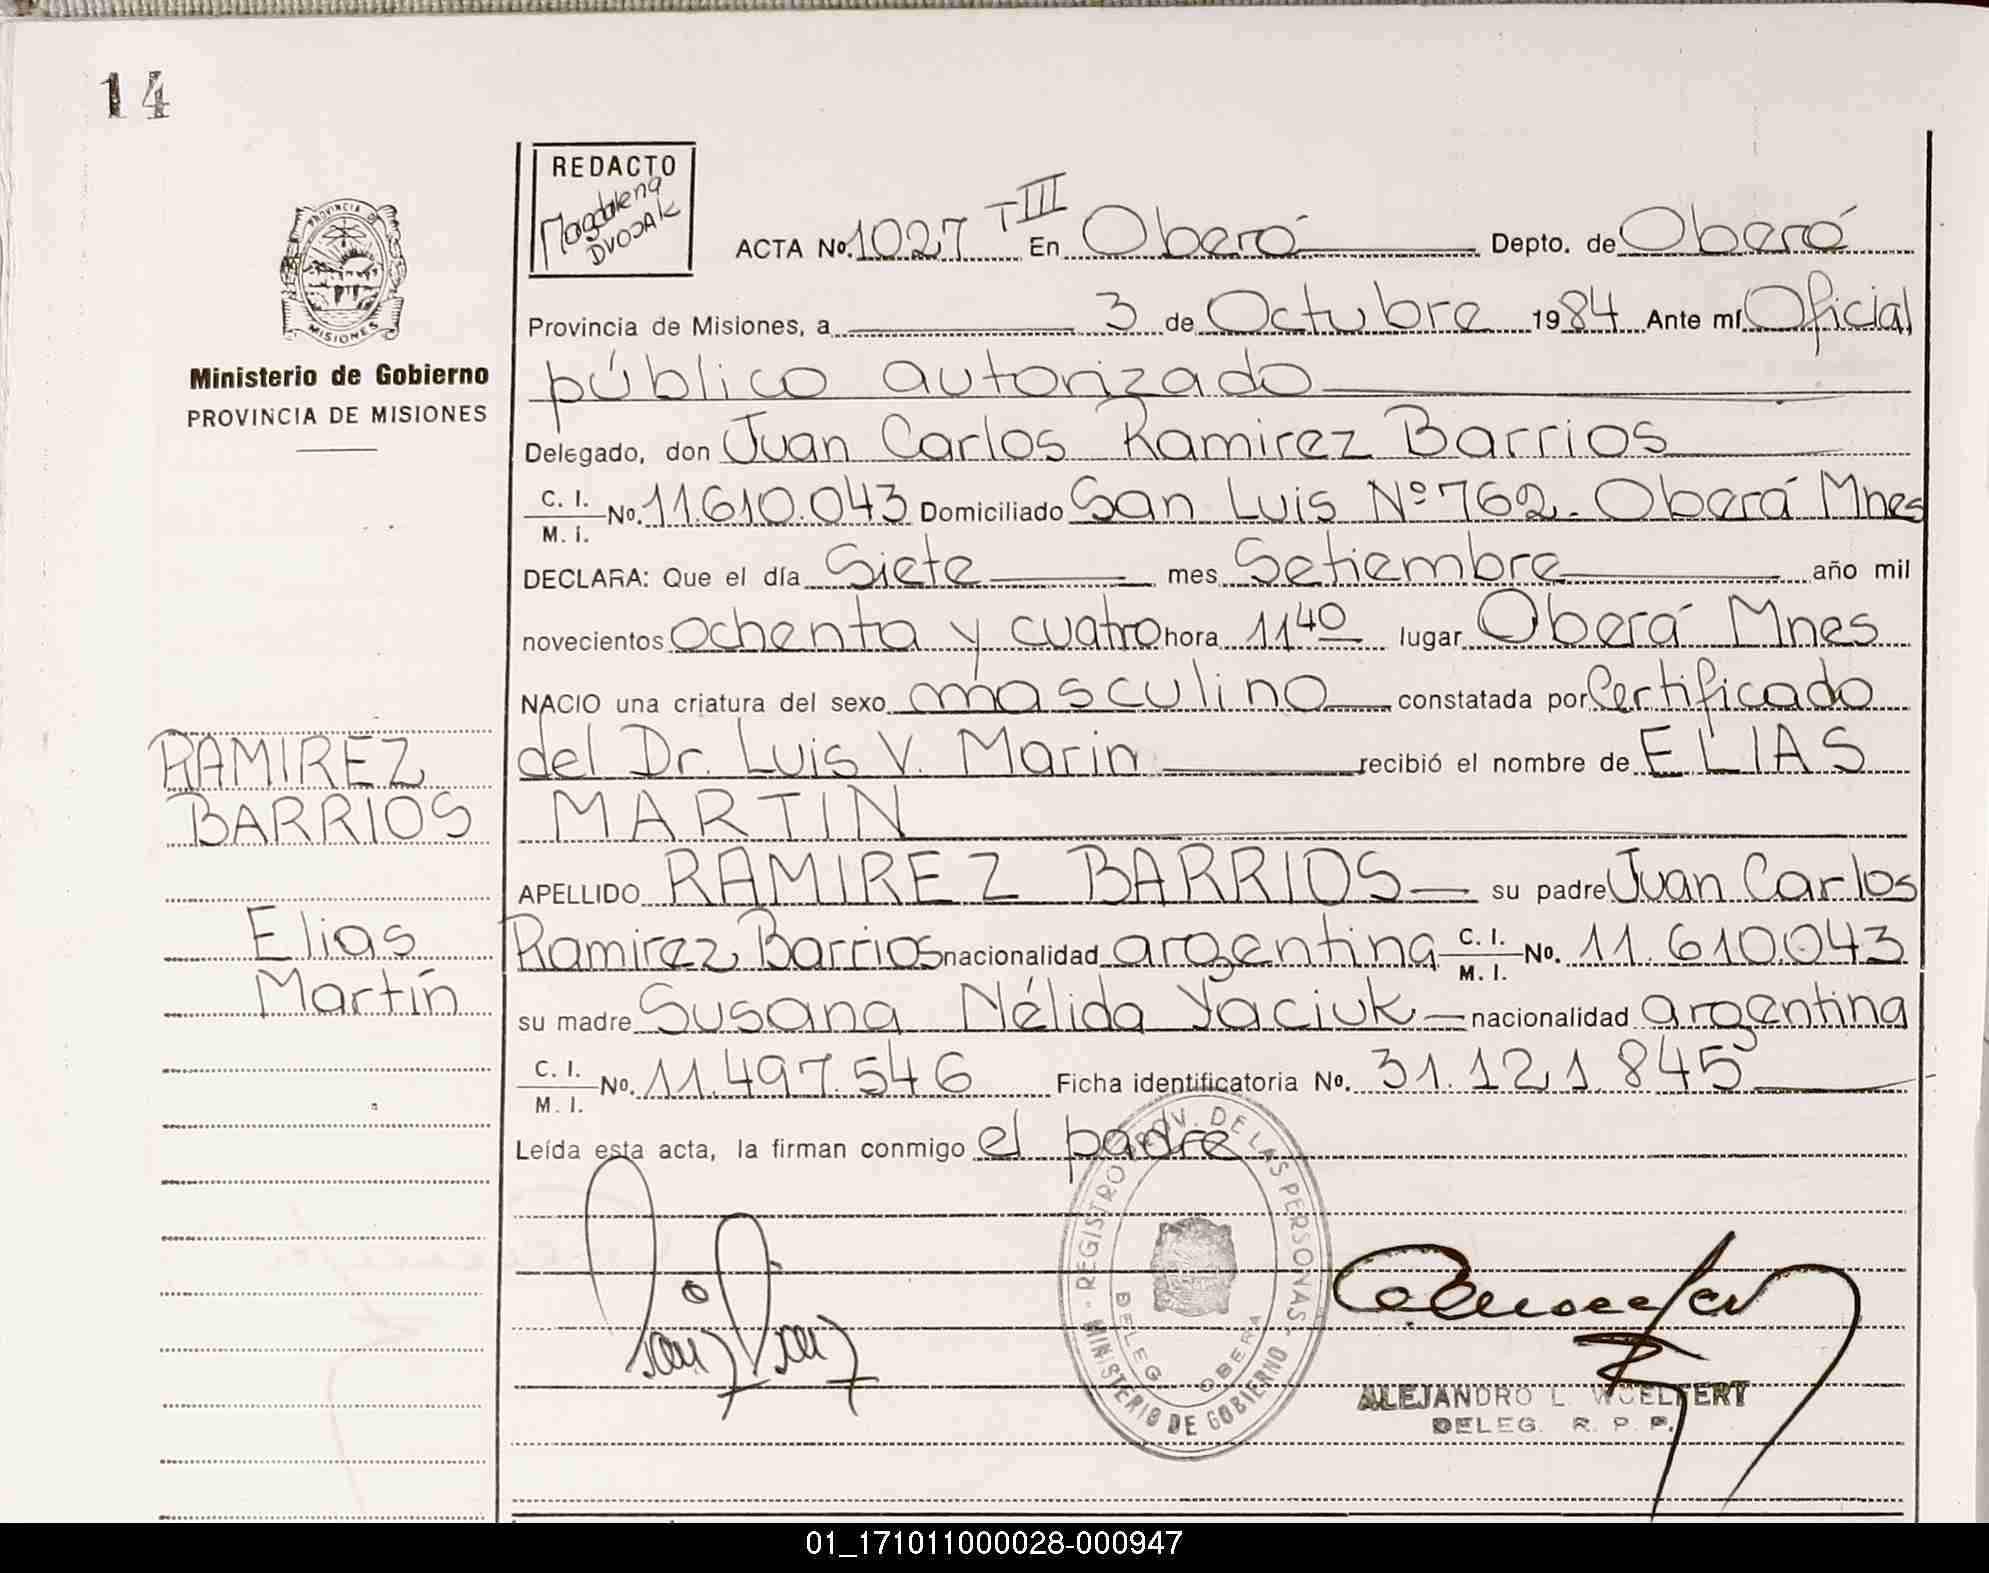 14
REDACTO
Magdalena
DVOJAK
PROVINCIA DE
MISIONES
Ministerio de Gobierno
PROVINCIA DE MISIONES
ACTA No. 1027 T III En Oberá Depto. de Oberá
Provincia de Misiones, a 3 de Octubre 1984 Ante mí Oficial
público autorizado
Delegado, don Juan Carlos Ramirez Barrios
C. I. M. I. No. 11.610.043 Domiciliado San Luis Nº 762 - Oberá Mnes
DECLARA: Que el día Siete mes Setiembre año mil
novecientos ochenta y cuatro hora 11 40 lugar Oberá Mnes
NACIO una criatura del sexo masculino constatada por Certificado
del Dr. Luis V. Marin recibió el nombre de ELIAS
MARTIN
RAMIREZ
BARRIOS
Elias
Martín
APELLIDO RAMIREZ BARRIOS su padre Juan Carlos
Ramirez Barrios nacionalidad argentina C. I. M. I. No. 11.610.043
su madre Susana Nélida Yaciuk nacionalidad argentina
C. I. M. I. No. 11.497.546 Ficha identificatoria No. 31.121.845
Leída esta acta, la firman conmigo el padre
REGISTRO PROV. DE LAS PERSONAS
MINISTERIO DE GOBIERNO
DELEG OBERA
ALEJANDRO L. WOELFERT
DELEG. R. P. P.
01_171011000028-000947